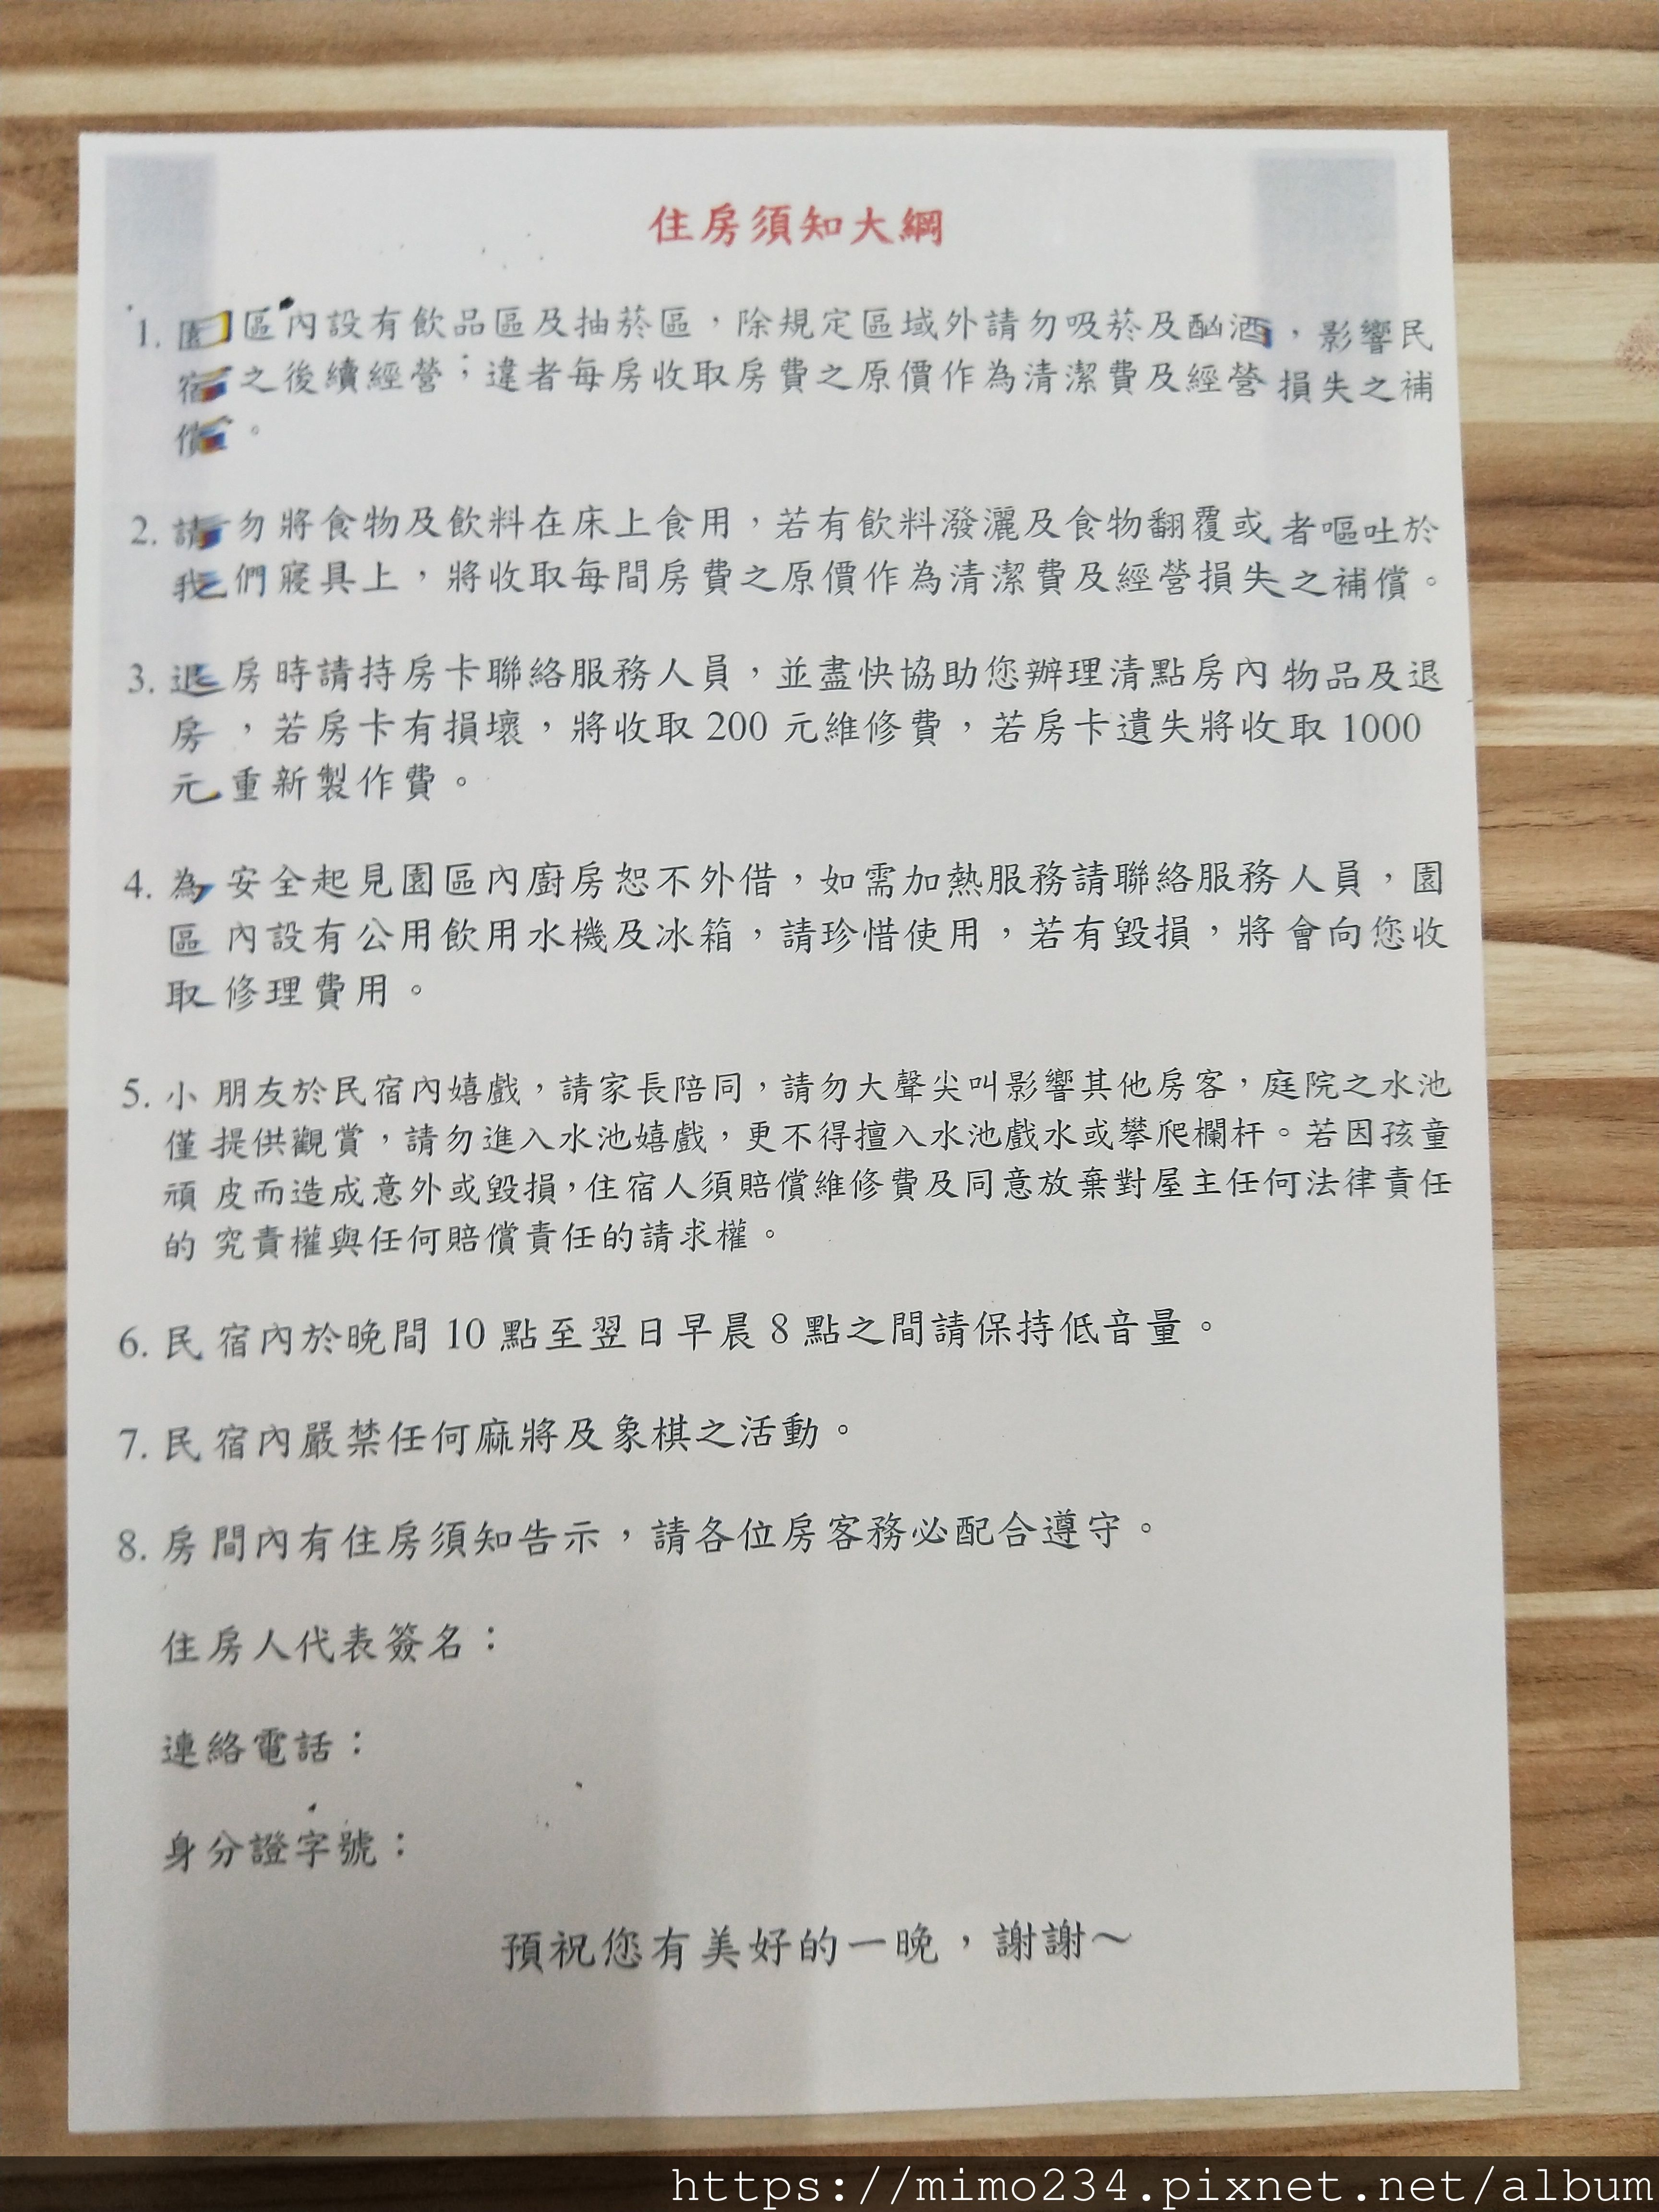 住房須知大綱
1. 園區內設有飲品區及抽菸區，除規定區域外請勿吸菸及酗酒，影響民
宿之後續經營；違者每房收取房費之原價作為清潔費及經營損失之補
償。
2. 請勿將食物及飲料在床上食用，若有飲料潑灑及食物翻覆或者嘔吐於
我們寢具上，將收取每間房費之原價作為清潔費及經營損失之補償。
3. 退房時請持房卡聯絡服務人員，並盡快協助您辦理清點房內物品及退
房，若房卡有損壞，將收取 200 元維修費，若房卡遺失將收取 1000
元重新製作費。
4. 為安全起見園區內廚房恕不外借，如需加熱服務請聯絡服務人員，園
區內設有公用飲用水機及冰箱，請珍惜使用，若有毀損，將會向您收
取修理費用。
5. 小朋友於民宿內嬉戲，請家長陪同，請勿大聲尖叫影響其他房客，庭院之水池
僅提供觀賞，請勿進入水池嬉戲，更不得擅入水池戲水或攀爬欄杆。若因孩童
頑皮而造成意外或毀損，住宿人須賠償維修費及同意放棄對屋主任何法律責任
的究責權與任何賠償責任的請求權。
6. 民宿內於晚間 10 點至翌日早晨 8 點之間請保持低音量。
7. 民宿內嚴禁任何麻將及象棋之活動。
8. 房間內有住房須知告示，請各位房客務必配合遵守。
住房人代表簽名：
連絡電話：
身分證字號：
預祝您有美好的一晚，謝謝～
https://mimo234.pixnet.net/album